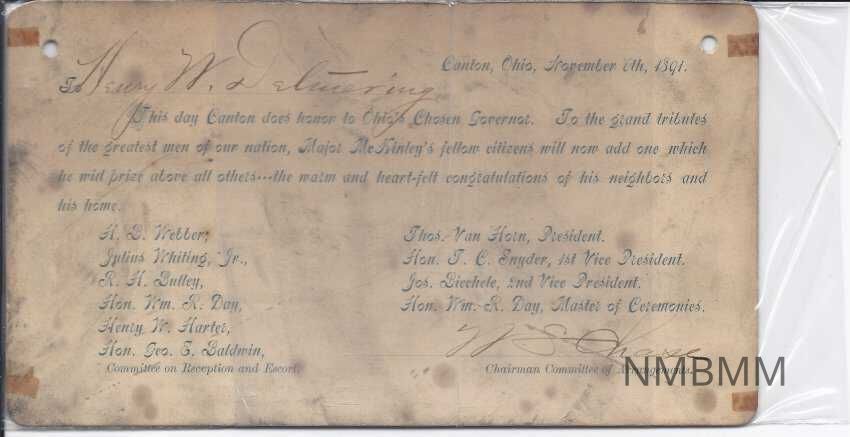 Canton, Ohio, November 6th, 1891.
To Henry W.
This day Canton does honor to Ohio's Chosen Governor. To the grand tributes
of the greatest men of our nation, Major McKinley's fellow citizens will now add one which
he wid prize above all others---the warm and heart-felt congratulations of his neighbors and
his home.
H. B. Webber,
Julius Whiting, Jr.,
R. H. Bulley,
Hon. Wm. R. Day,
Henry W. Harter,
Hon. Geo. E. Baldwin,
Committee on Reception and Escort.
Thos. Van Horn, President.
Hon. T. C. Snyder, 1st Vice President.
Jos. Biechele, 2nd Vice President.
Hon. Wm. R. Day, Master of Ceremonies.
W S
Chairman Committee of Arrangements.
NMBMM